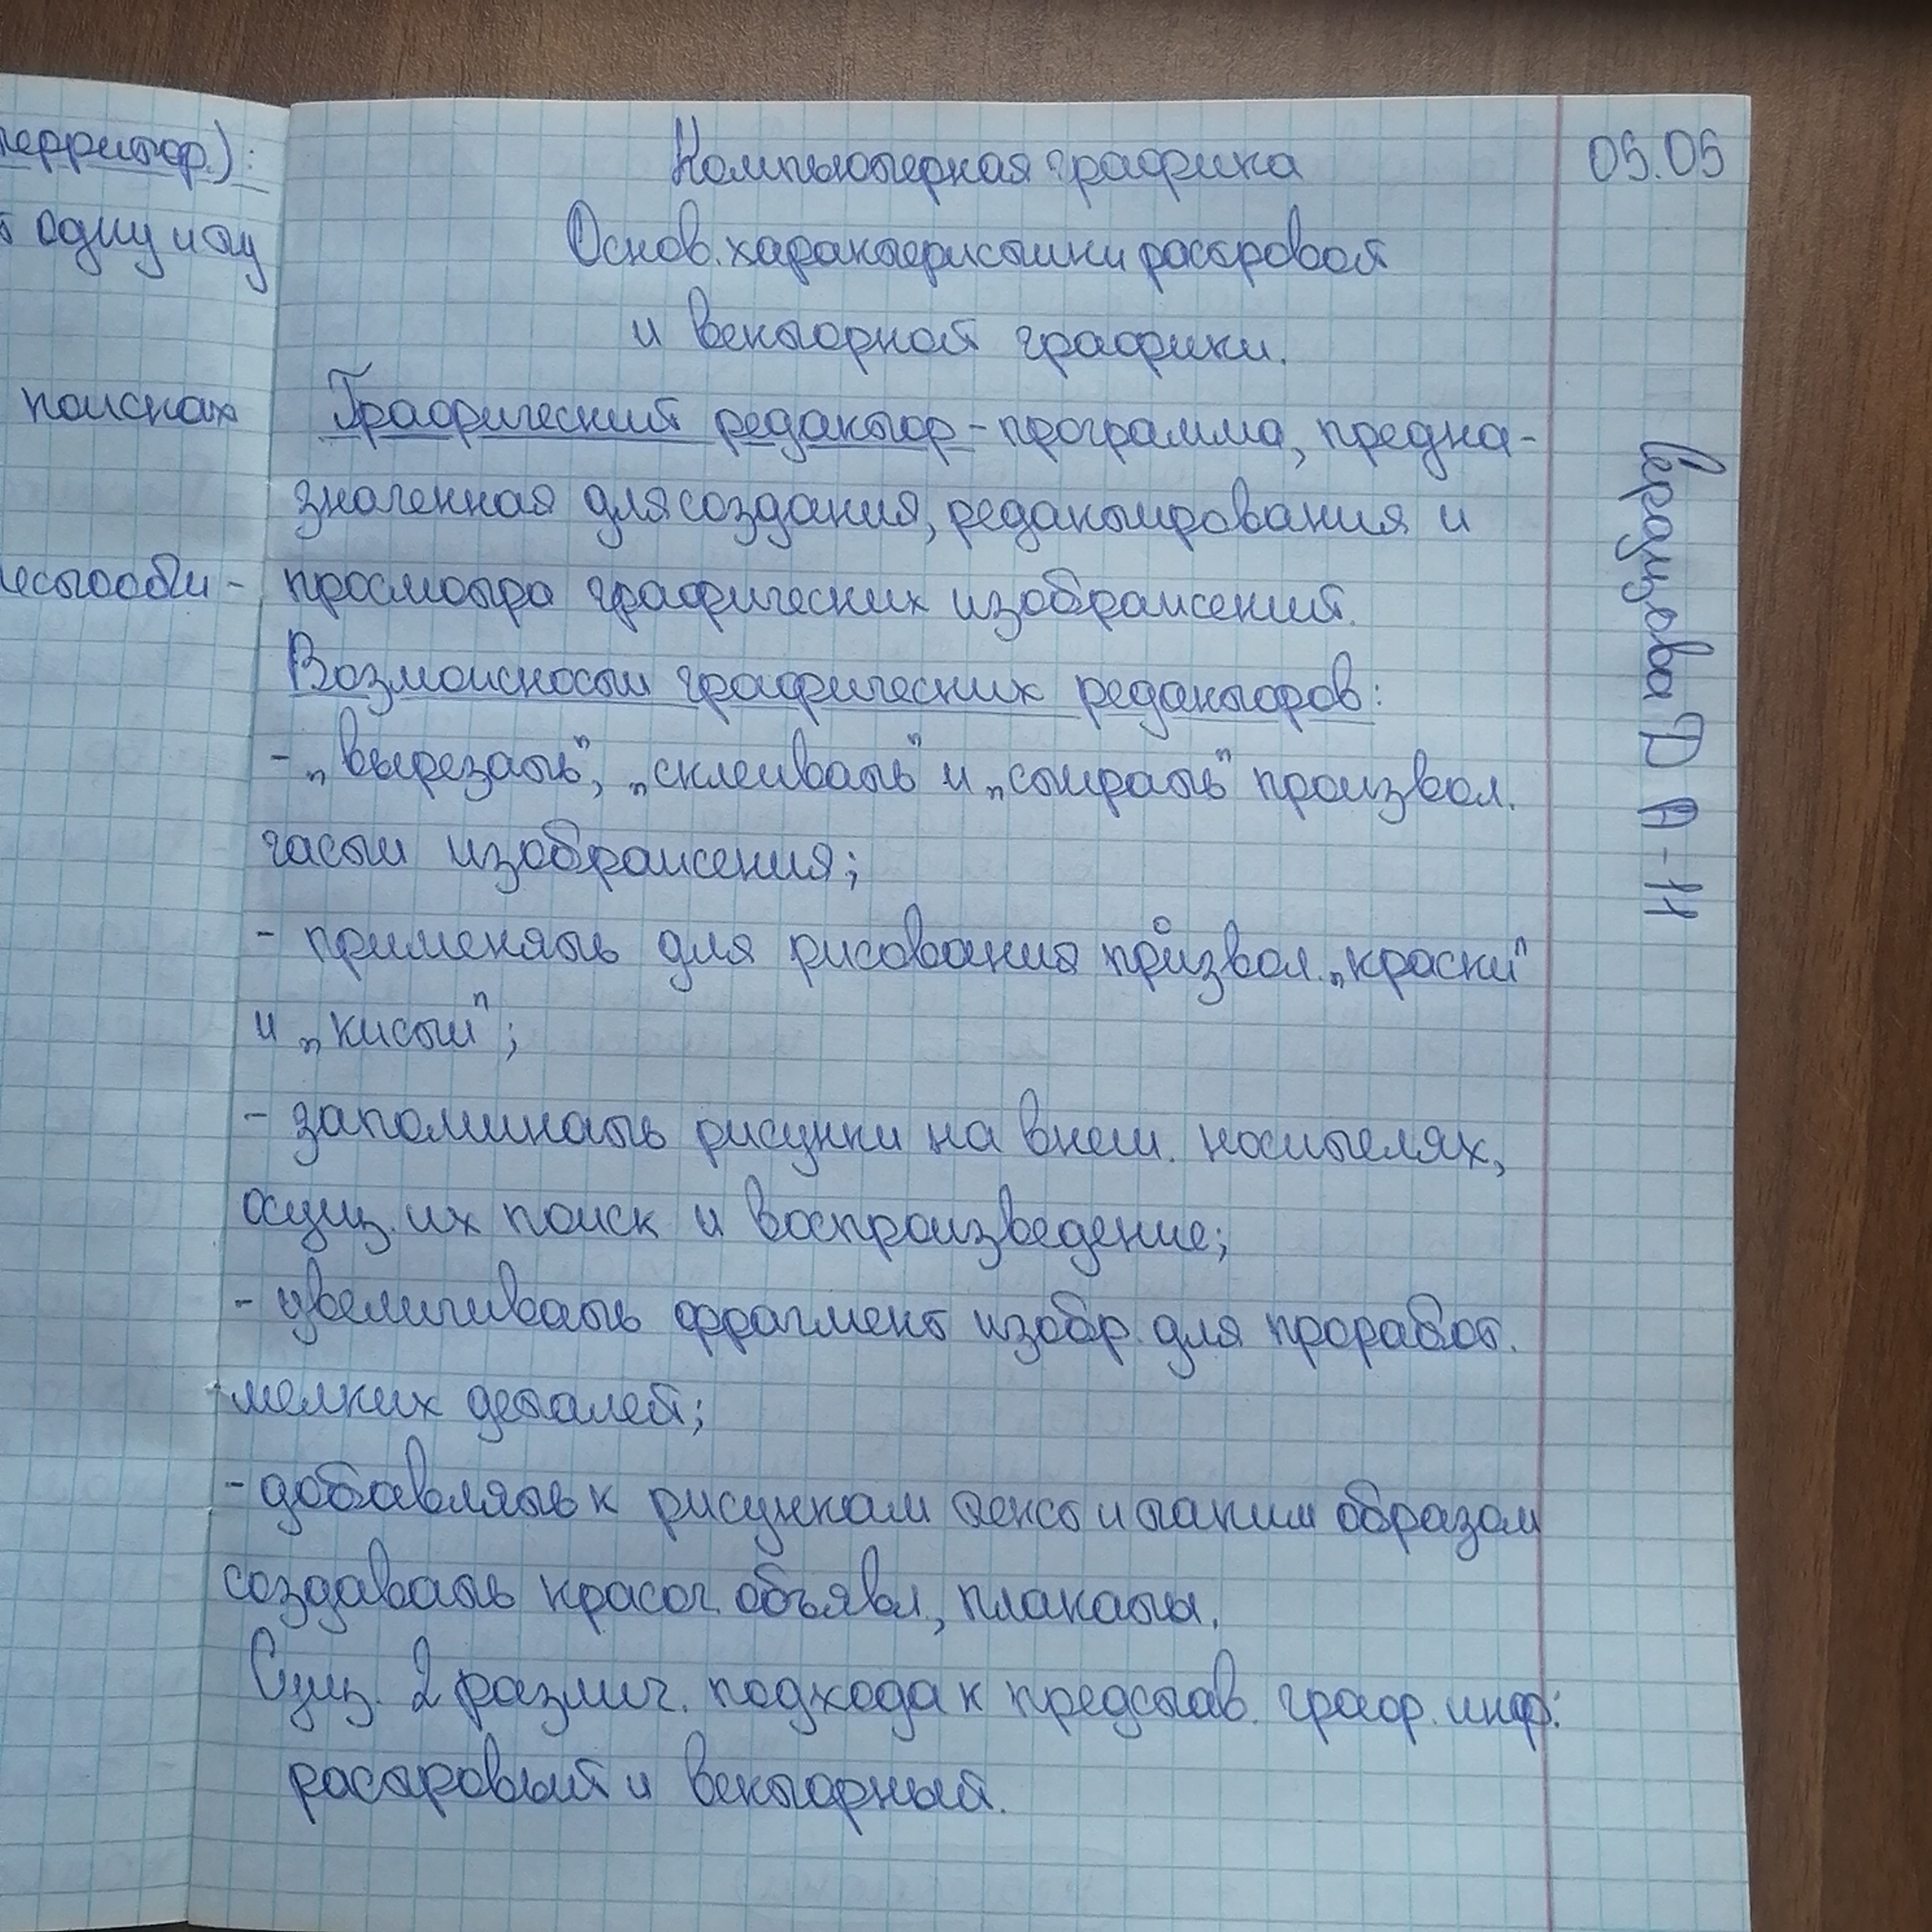 территор.):
одну и ту
поисках
05.05
Компьютерная графика
Основ. характеристики растровой
и векторной графики.
Графический редактор - программа, предна-
значенная для создания, редактирования и
просмотра графических изображений.
Возможности графических редакторов:
- „вырезать", „склеивать" и „стирать" произвол.
части изображения;
- применять для рисования произвол. „краски"
и „кисти";
- запоминать рисунки на внеш. носителях,
осущ. их поиск и воспроизведение;
- увеличивать фрагмент изобр. для проработ.
мелких деталей;
- добавлять к рисункам текст и таким образом
создавать красоч. объявл., плакаты.
Сущ. 2 различ. подхода к представ. граф. инф.:
растровый и векторный.
Д А-11